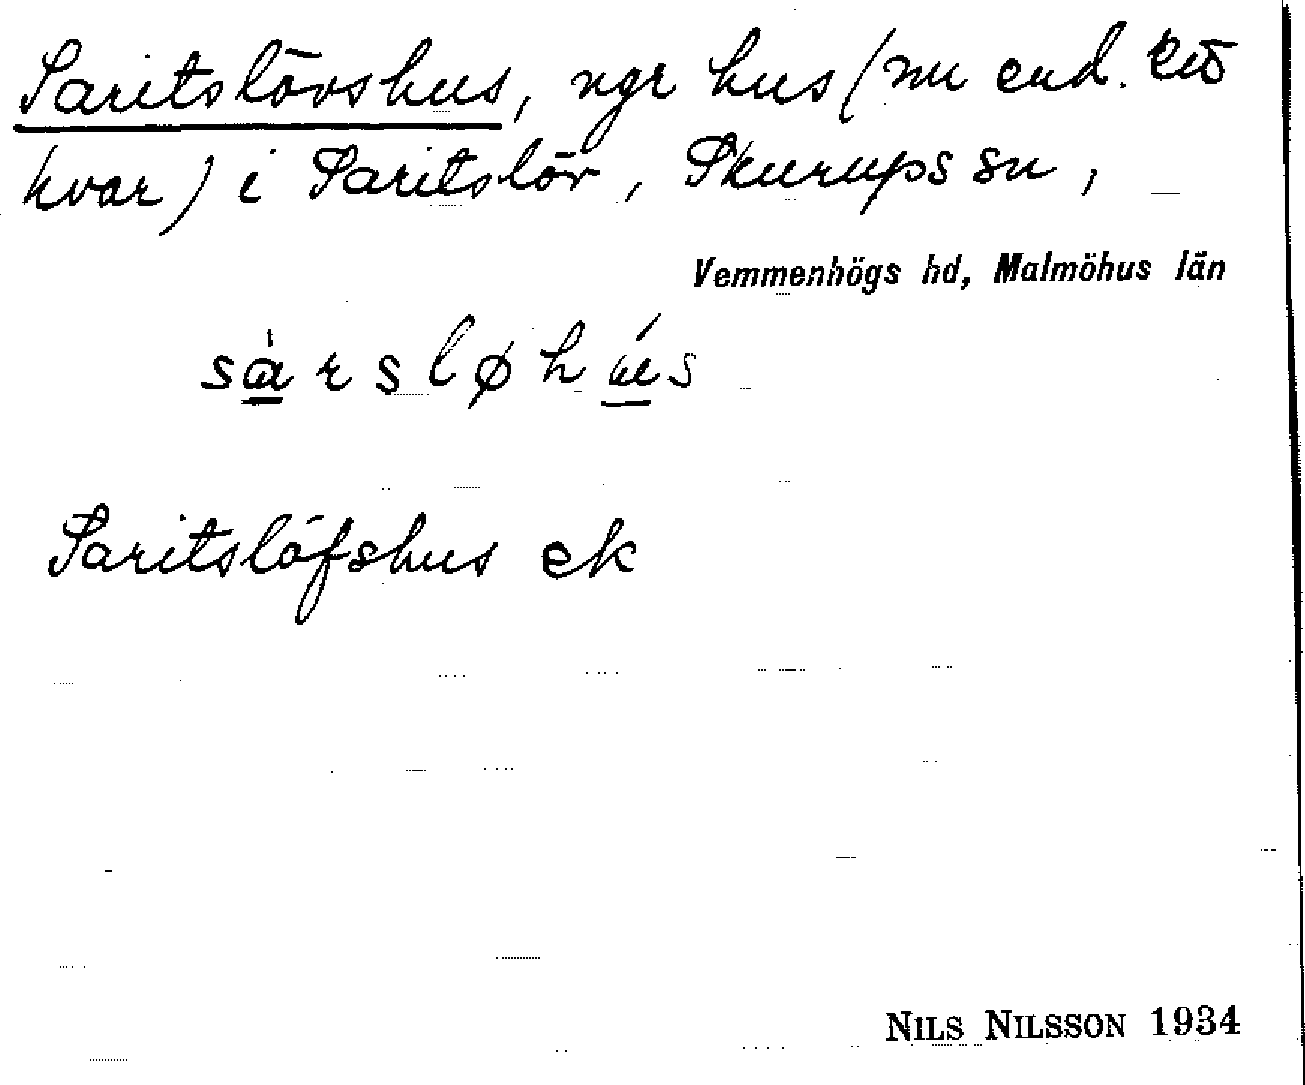 Saritslövshus, ngr hus (nu end. ett
kvar) i Saritslöv, Skurups sn,
Vemmenhögs hd, Malmöhus län
sàrsløhús
Saritslöfshus ek
NILS NILSSON 1934